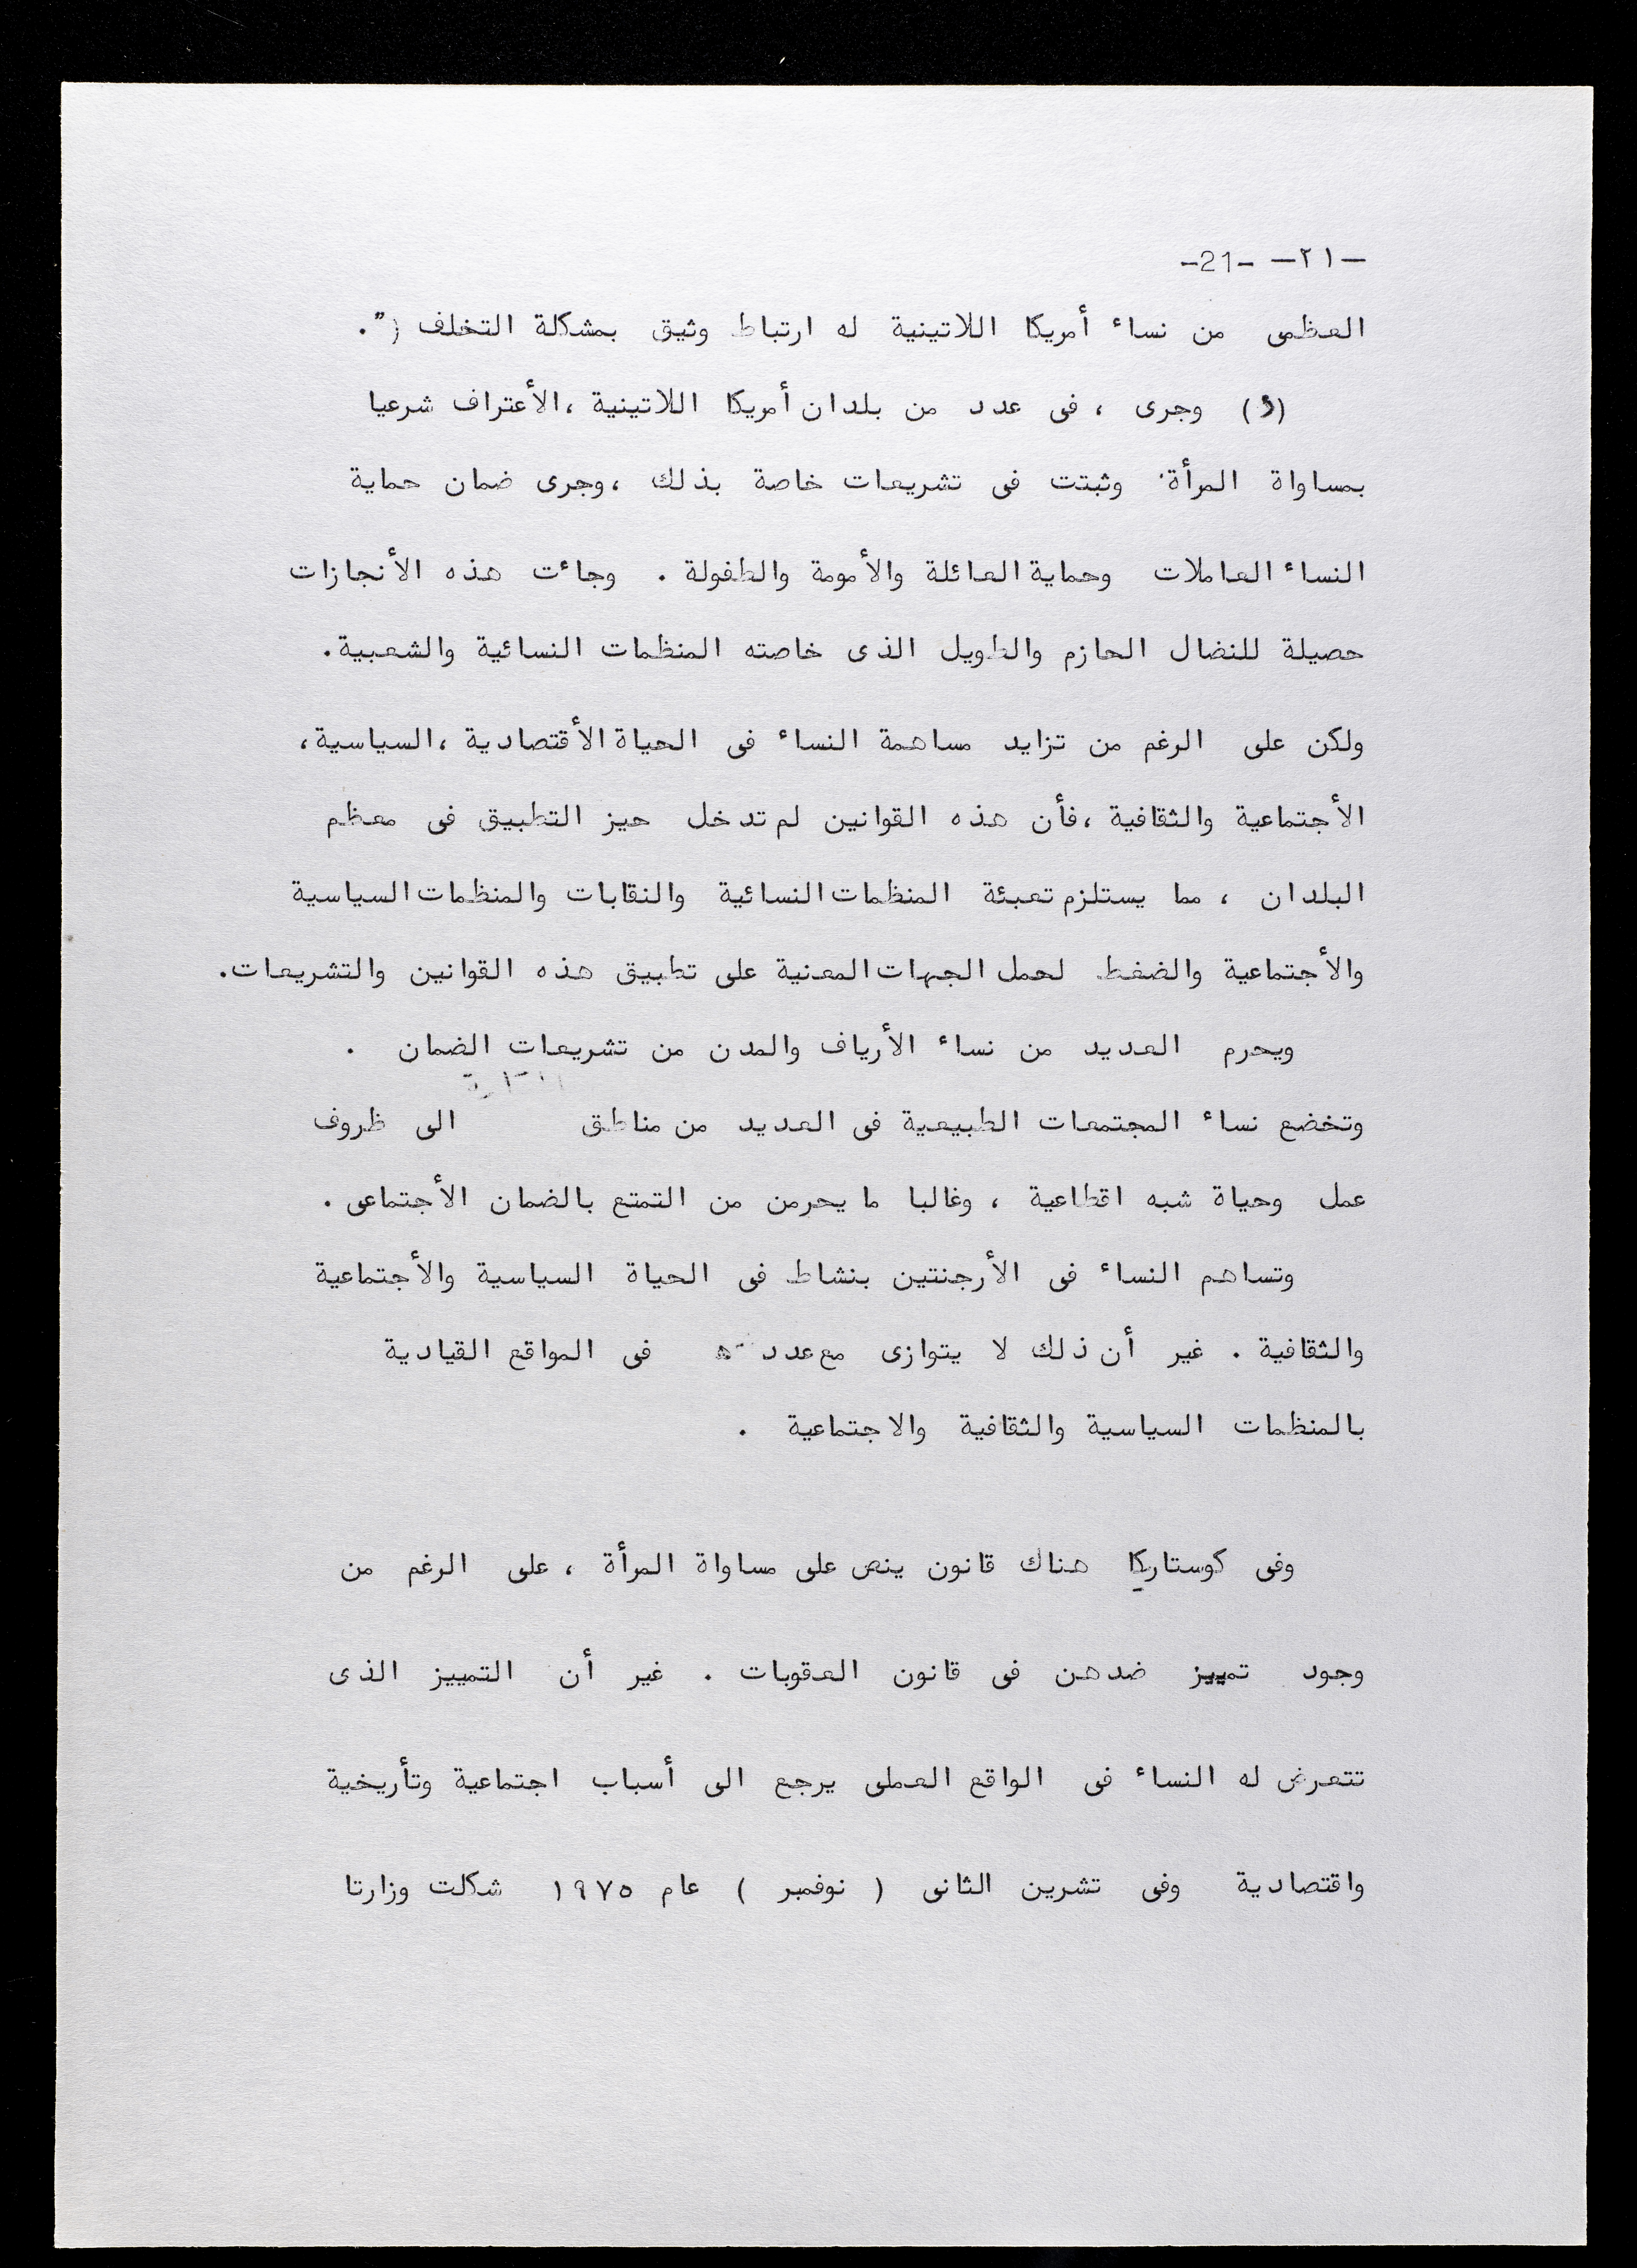 -٢١- -21-
العظمى من نساء أمريكا اللاتينية له ارتباط وثيق بمشكلة التخلف )".
(و) وجرى ، فى عدد من بلدان أمريكا اللاتينية ،الأعتراف شرعيا
بمساواة المرأة وثبتت فى تشريعات خاصة بذلك ،وجرى ضمان حماية
النساء العاملات وحماية العائلة والأمومة والطفولة . وجاءت هذه الأنجازات
حصيلة للنضال الحازم والطويل الذى خاصته المنظمات النسائية والشعبية.
ولكن على الرغم من تزايد مساهمة النساء فى الحياة الأقتصادية ،السياسية،
الأجتماعية والثقافية ،فأن هذه القوانين لم تدخل حيز التطبيق فى معظم
البلدان ، مما يستلزم تعبئة المنظمات النسائية والنقابات والمنظمات السياسية
والأجتماعية والضغط لحمل الجهات المعنية على تطبيق هذه القوانين والتشريعات.
ويحرم العديد من نساء الأرياف والمدن من تشريعات الضمان .
وتخضع نساء المجتمعات الطبيعية فى العديد من مناطق الى ظروف
عمل وحياة شبه اقطاعية ، وغالبا ما يحرمن من التمتع بالضمان الأجتماعى .
وتساهم النساء فى الأرجنتين بنشاط فى الحياة السياسية والأجتماعية
والثقافية . غير أن ذلك لا يتوازى مع عدد فى المواقع القيادية
بالمنظمات السياسية والثقافية والاجتماعية .
وفى كوستاريكا هناك قانون ينص على مساواة المرأة ، على الرغم من
وجود تمييز ضدهن فى قانون العقوبات . غير أن التمييز الذى
تتعرض له النساء فى الواقع العملى يرجع الى أسباب اجتماعية وتأريخية
واقتصادية وفى تشرين الثانى ( نوفمبر ) عام ١٩٧٥ شكلت وزارتا